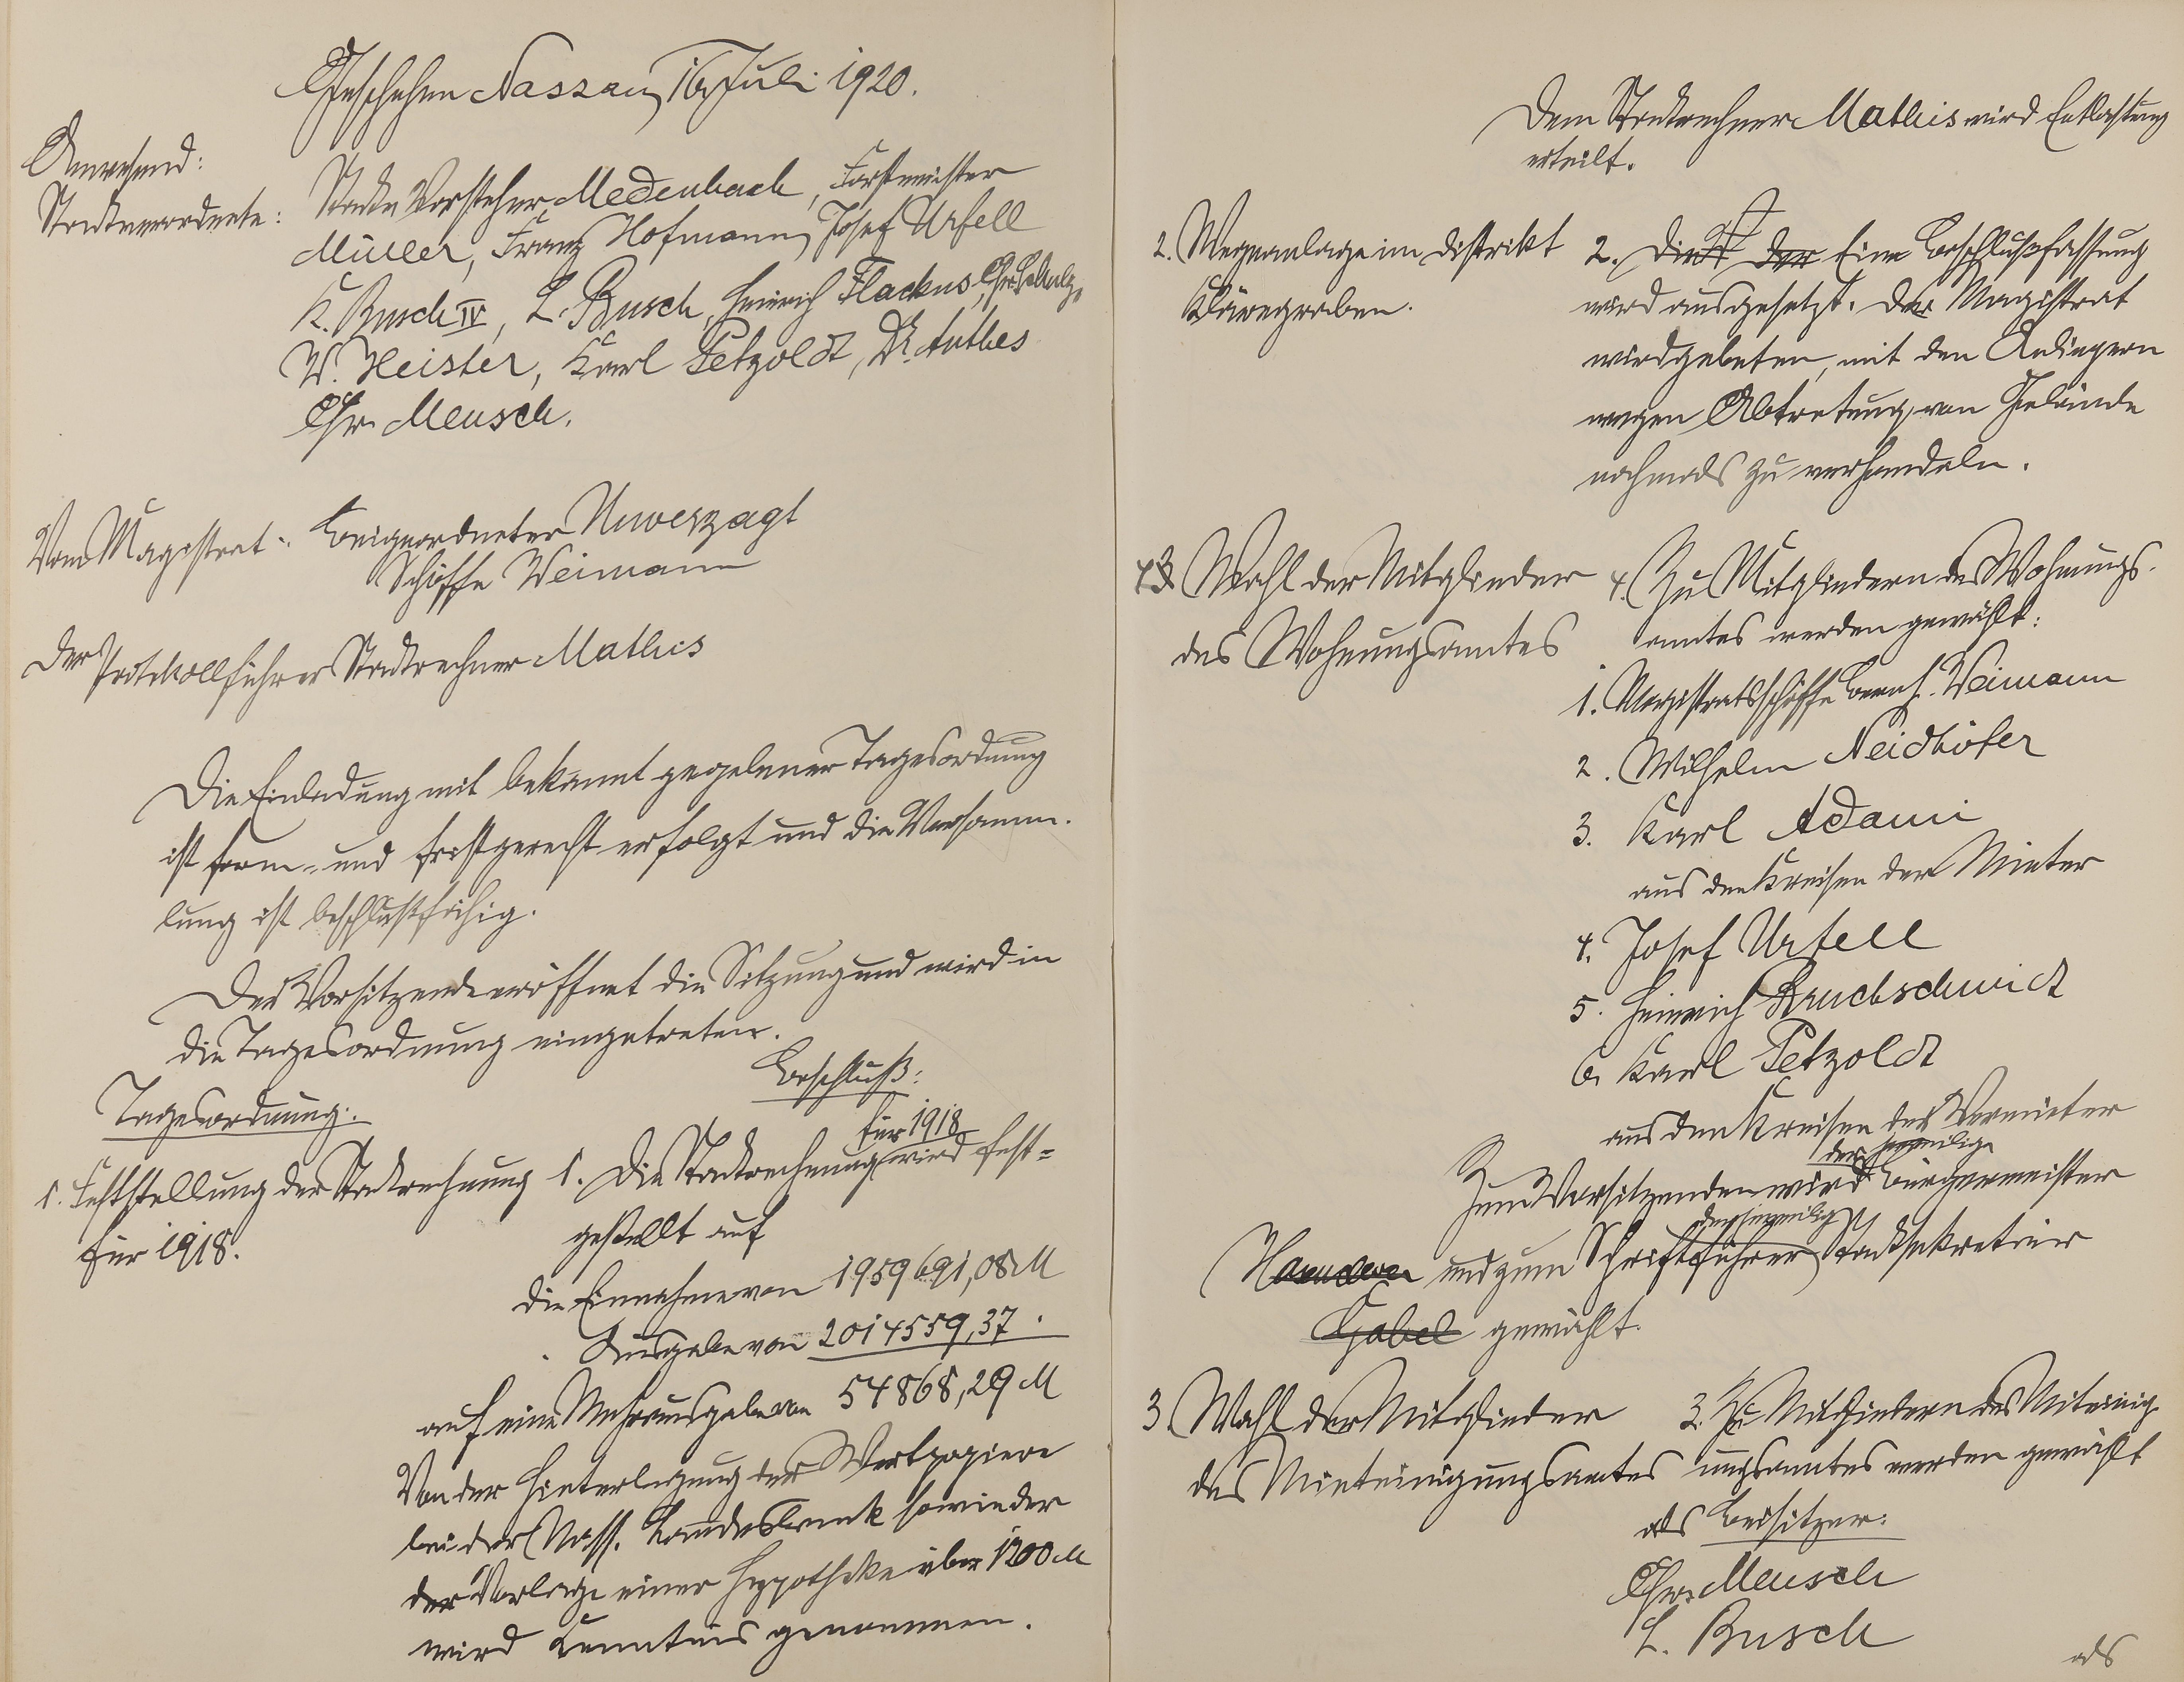 Geschehen Nassau, 16 Juli 1920.
Anwesend:
Stadtverordnete: Stadtv. Vorsteher Medenbach, Forstmeister
Müller, Franz Hofmann, Josef Urfell
K. Busch IV, L. Busch, Heinrich Flackus, Chr. Schulz,
W. Heister, Karl Petzoldt, Dr. Anthes
Chr. Meusch.
Vom Magistrat: Beigeordneter Unverzagt
Schöffe Weimann
Der Protokollführer Stadtrechner Mathis
Die Einladung mit bekannt gegebener Tagesordnung
ist form- und fristgerecht erfolgt und die Versamm-
lung ist beschlußfähig.
Der Vorsitzende eröffnet die Sitzung und wird in
die Tagesordnung eingetreten.
Beschluß:
Tagesordnung:
1. Feststellung der Stadtrechnung
für 1918.
1. Die Stadtrechnung für 1918 wird fest=
gestellt auf
die Einnahme von 1959691,08 M
" Ausgabe von 2014559,37 "
auf eine Mehrausgabe von 54868,29 M
Von der Hinterlegung der Wertpapiere
bei der Nass. Landesbank sowie der
der Vorlage einer Hypotheke über 1200 M
wird Kenntnis genommen.
Dem Stadtrechner Mathis wird Entlastung
erteilt.
2. Wegeanlage im Distrikt
Kläregraben.
2. Die der Eine Beschlußfassung
wird ausgesetzt. Der Magistrat
wird gebeten, mit den Anliegern
wegen Abtretung von Gelände
nochmals zu verhandeln.
4. Wahl der Mitglieder
des Wohnungsamtes
4. Zu Mitgliedern des Wohnungs-
amtes werden gewählt:
1. Magistratsschöffe Bernh. Weimann
2. Wilhelm Neidhöfer
3. Karl Adami
aus den Kreisen der Mieter
4. Josef Urfell
5. Heinrich Bruchschmidt
6. Karl Petzoldt
aus den Kreisen der Vermieter
der jeweilige
Zum Vorsitzenden wird Bürgermeister
der jeweilig
und zum Schriftführer Stadtsekretär
Gabel gewählt.
3. Wahl der Mitglieder
des Mieteinigungsamtes
3. Zu Mitgliedern des Mieteinig-
ungsamtes werden gewählt
als Beisitzer:
Chr. Meusch
L. Busch
als